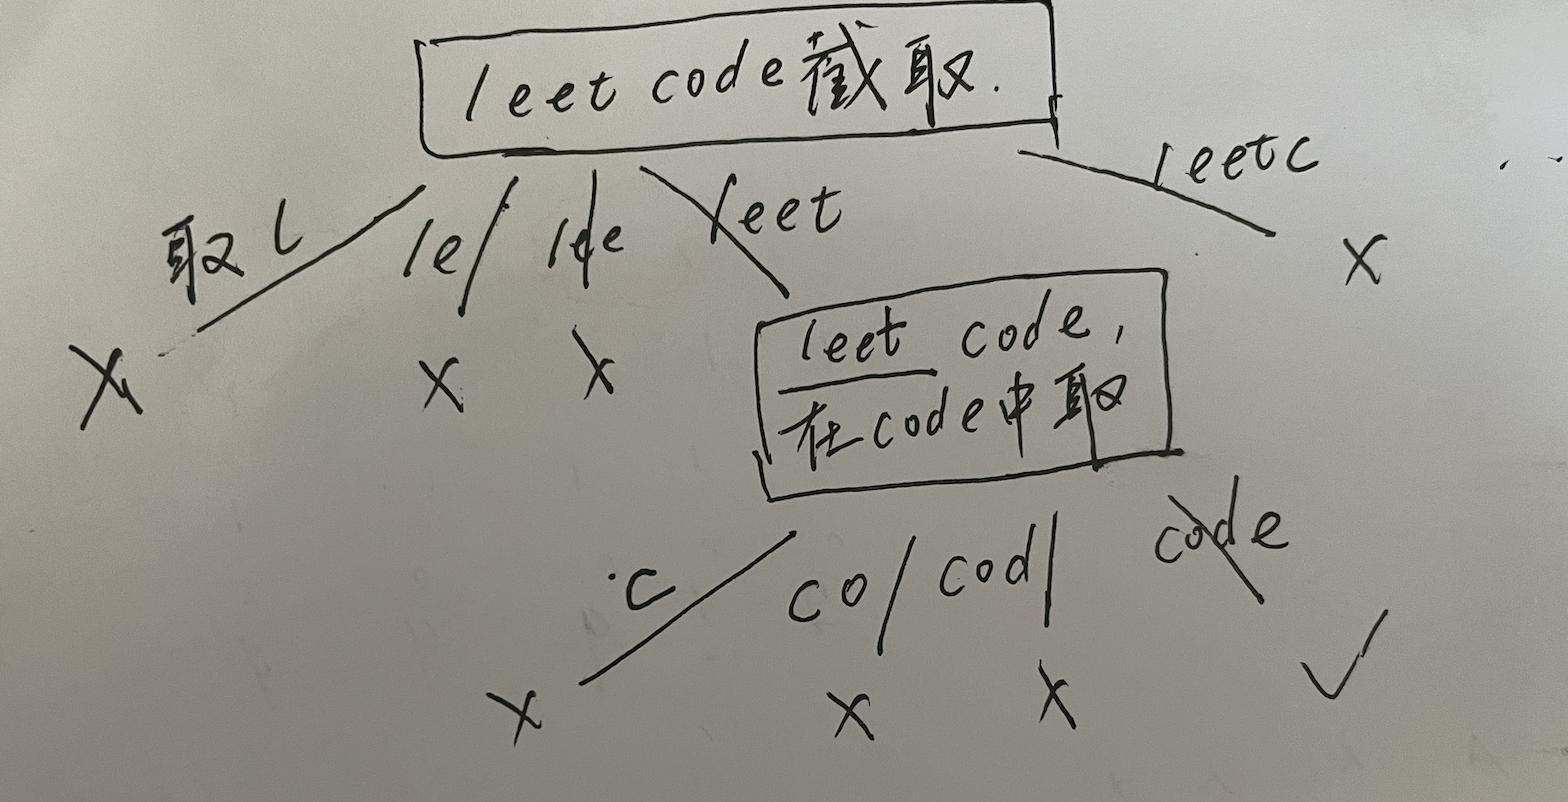 leet code截取.
取 l
le
lee
leet
leetc
x
x
x
x
leet code,
在code中取
c
co
cod
code
x
x
x
✓